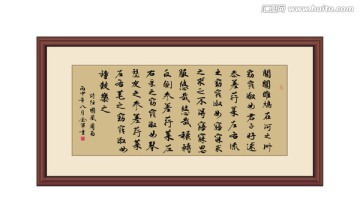 汇图网
www.huitu.com
關關雎鳩在河之洲
窈窕淑女君子好逑
參差荇菜左右流
之窈窕淑女寤寐求
之求之不得寤寐思
服悠哉悠哉輾轉
反側參差荇菜左
右采之窈窕淑女琴
瑟友之參差荇菜
左右芼之窈窕淑女
鐘鼓樂之
詩經國風周南
丙申年八月